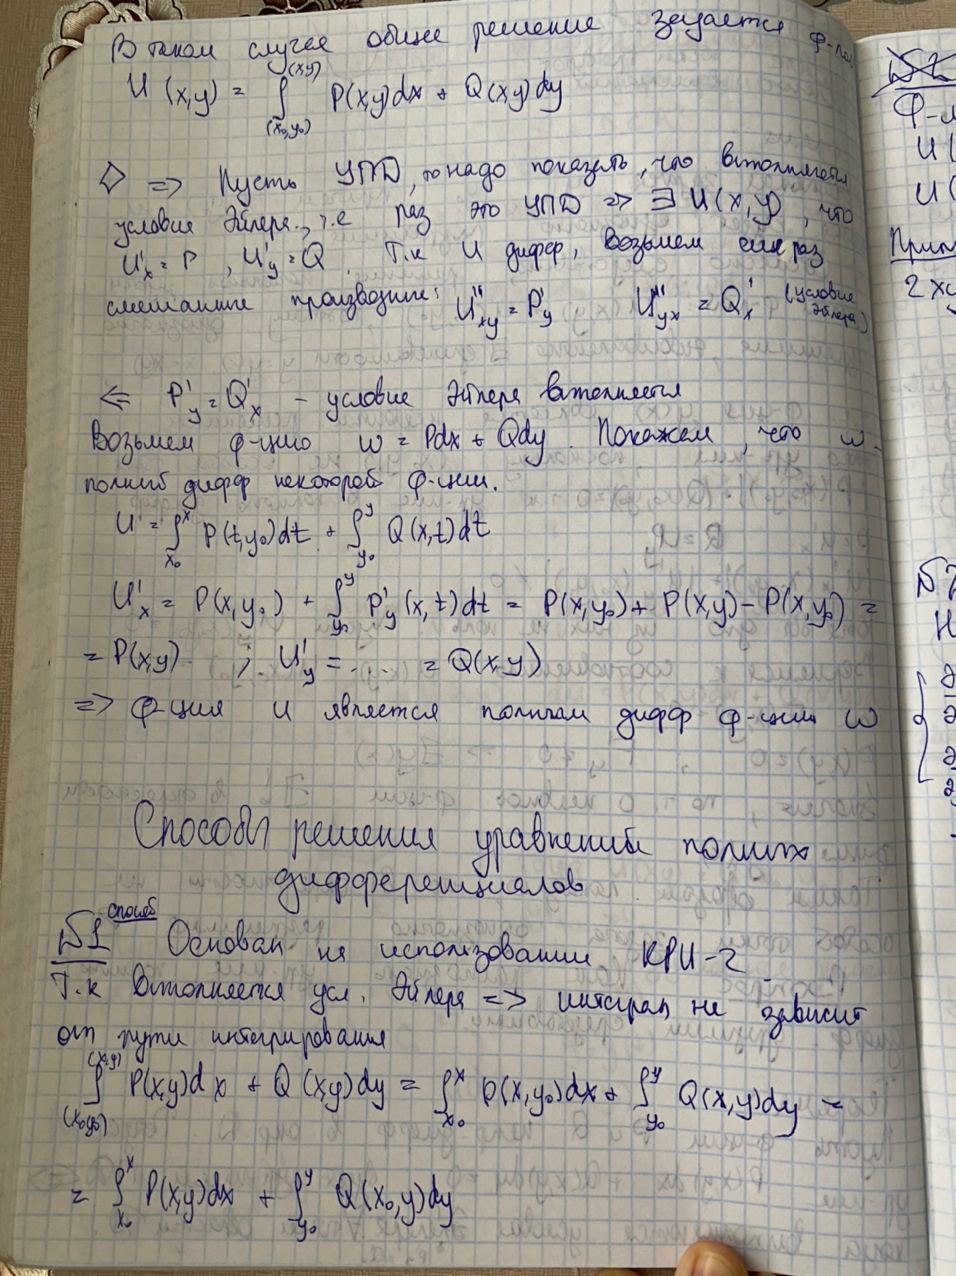 В таком случае общее решение задается ф-лой
U(x,y) = ∫_(x₀,y₀)^(x,y) P(x,y)dx + Q(x,y)dy
◇ => Пусть УПД, то надо показать, что выполняется
условие Эйлера, т.е раз это УПД => ∃ U(x,y), что
U'x = P, U'y = Q. Т.к U дифф, возьмем ещё раз
смешанные производные: U''xy = P'y U''yx = Q'x (условие Эйлера)
<= P'y = Q'x – условие Эйлера выполняется
Возьмем ф-цию w = Pdx + Qdy. Покажем, что w –
полный дифф некоторой ф-ции.
U = ∫_x₀^x P(t,y₀)dt + ∫_y₀^y Q(x,t)dt
U'x = P(x,y₀) + ∫_y₀^y P'y(x,t)dt = P(x,y₀) + P(x,y) – P(x,y₀) =
= P(x,y) ; U'y = ... = Q(x,y)
=> ф-ция U является полным дифф ф-ции w
Способы решения уравнений полных
дифференциалов
№1 способ Основан на использовании КРИ-2
Т.к выполняется усл. Эйлера => интеграл не зависит
от пути интегрирования
∫_(x₀,y₀)^(x,y) P(x,y)dx + Q(x,y)dy = ∫_x₀^x P(x,y₀)dx + ∫_y₀^y Q(x,y)dy =
= ∫_x₀^x P(x,y)dx + ∫_y₀^y Q(x₀,y)dy
№2
Ф-л
U(
U(
Прим
2x